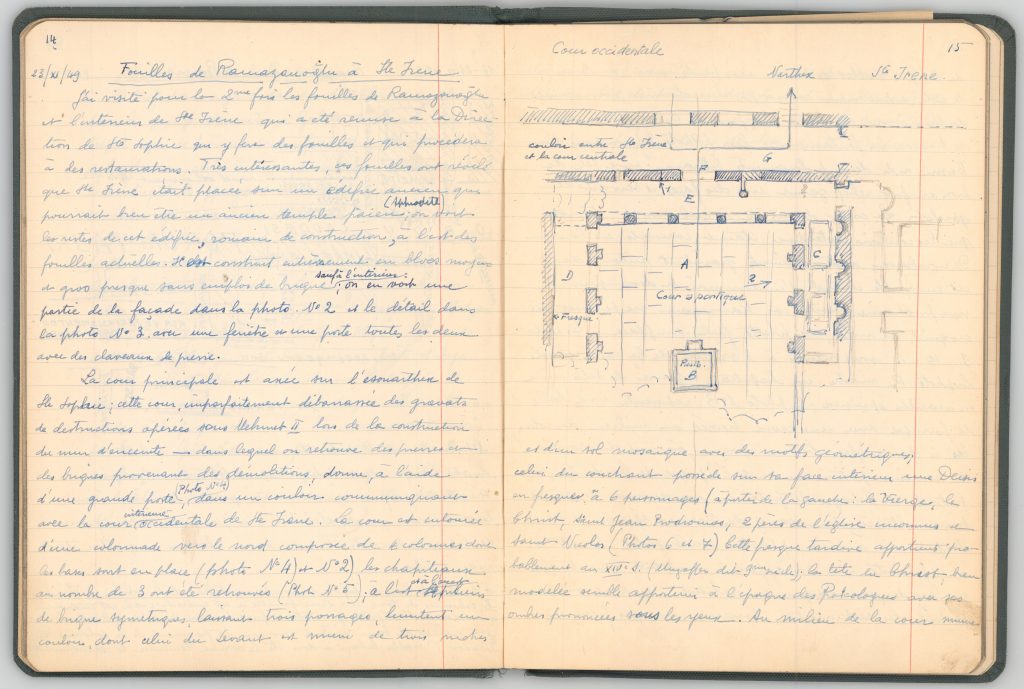 14
23/XI/49 Fouilles de Ramazanoğlu à Ste Irène
J'ai visité pour la 2me fois les fouilles de Ramazanoğlu
et l'intérieur de Ste Irène qui a été remise à la Direc-
tion de Ste Sophie qui y fera des fouilles et qui procédera
à des restaurations. Très intéressantes, ces fouilles ont révélé
que Ste Irène était placée sur un édifice ancien qui
pourrait bien être un ancien temple païens (Aphrodite); on voit
les restes de cet édifice, romain de construction, à l'est des
fouilles actuelles. Il est construit entièrement en blocs moyens
et gros presque sans emplois de brique sauf à l'intérieur; on en voit une
partie de la façade dans la photo No 2 et le détail dans
la photo No 3 avec une fenêtre et une porte toutes les deux
avec des claveaux de pierre.
La cour principale est axée sur l'esonarthex de
Ste Sophie; cette cour, imparfaitement débarrassée des gravats
de destructions opérées sous Mehmet II lors de la construction
du mur d'enceinte — dans lequel on retrouve des pierres et
des briques provenant des démolitions, donne, à l'aide
d'une grande porte (Photo No 4), dans un couloir communiquant
avec la cour intérieure occidentale de Ste Irène. La cour est entourée
d'une colonnade vers le nord composée de 4 colonnes dont
les bases sont en place (photo No 4 et No 2) les chapiteaux
au nombre de 3 ont été retrouvés (Phot No 5); à l'est et à l'ouest piliers
de brique symetriques, laissant trois passages, limitent un
couloir, dont celui du levant est muni de trois niches
15
Cour occidentale
Narthex Ste Irène
couloir entre Ste Irène
et la cour centrale
G
F
E
D
A
2
C
Cour à portique
Fresque
B
et d'un sol mosaïqué avec des motifs géométriques,
celui du couchant possède sur sa face intérieure une Deisis
en fresques, à 6 personnages (à partir de la gauche: la Vierge, le
Christ, Saint Jean Prodromos, 2 pères de l'église inconnus et
saint Nicolas (Photos 6 et 7) Cette fresque tardive appartient pro-
bablement au XIVe s. (Muzaffer dit 9me siècle); la tête du Christ, bien
modelée semble appartenir à l'époque des Paléologues avec ses
ombres prononcées sous les yeux. Au milieu de la cour